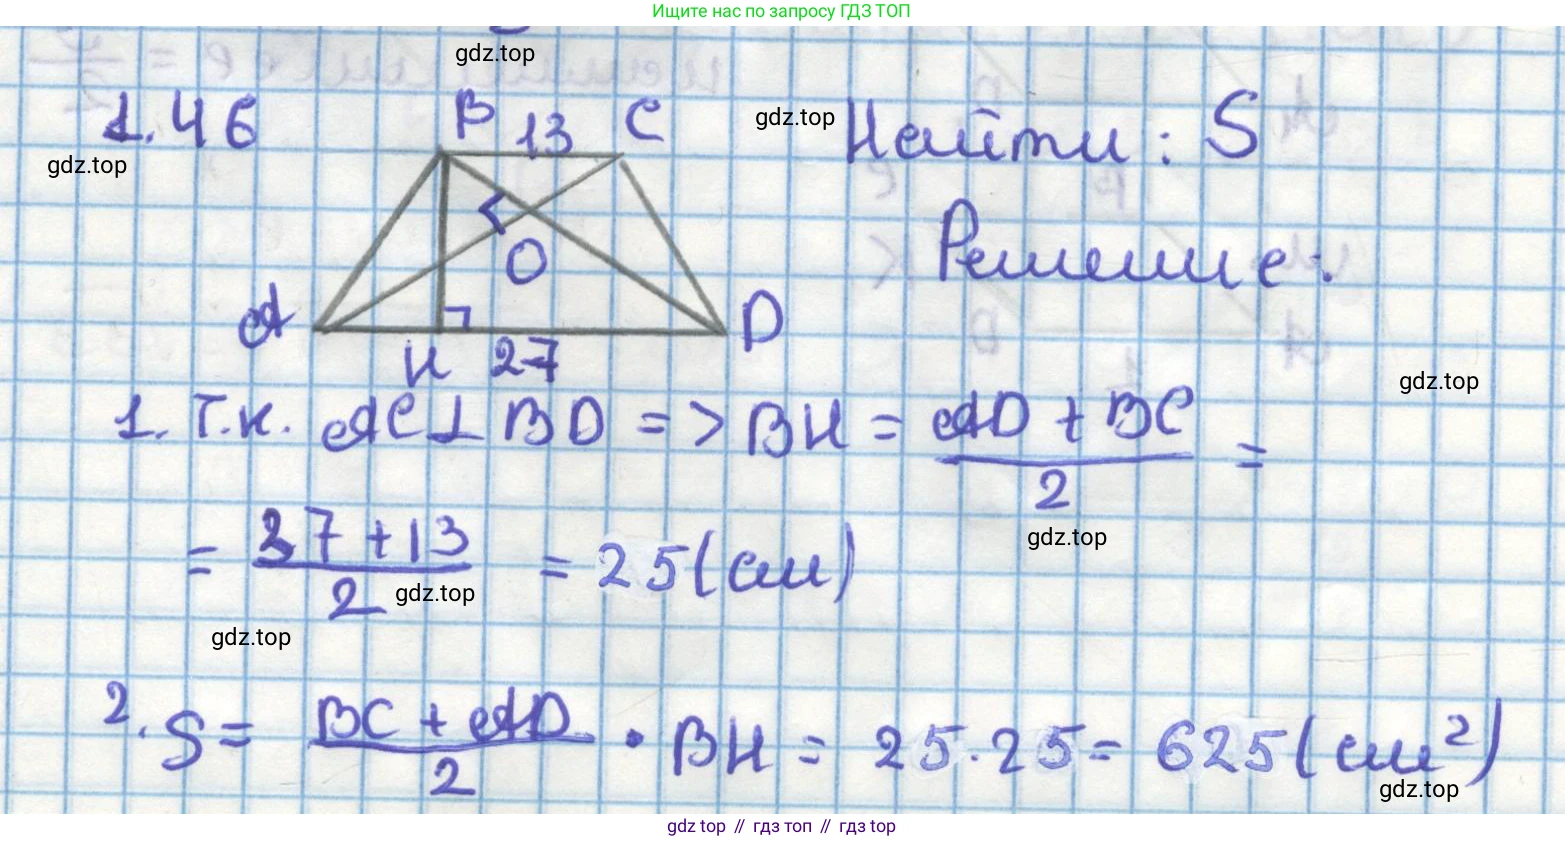 Ищите нас по запросу ГДЗ ТОП
gdz.top
1.46
B 13 C
gdz.top
Найти: S
gdz.top
Решение:
O
A
D
H 27
gdz.top
1. Т.к. AC⊥BD => BH = AD + BC / 2 =
gdz.top
= 37+13 / 2 = 25(см)
gdz.top
gdz.top
2. S = BC + AD / 2 · BH = 25·25 = 625(см²)
gdz.top
gdz top // гдз топ // гдз top